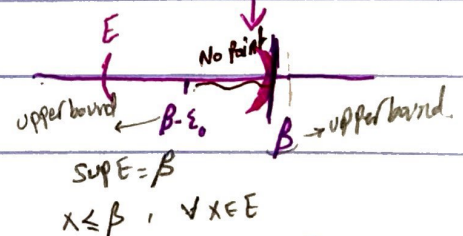 E
No Point
upper bound ← β-ε₀ β → upper bound
sup E = β
x ≤ β , ∀ x ∈ E